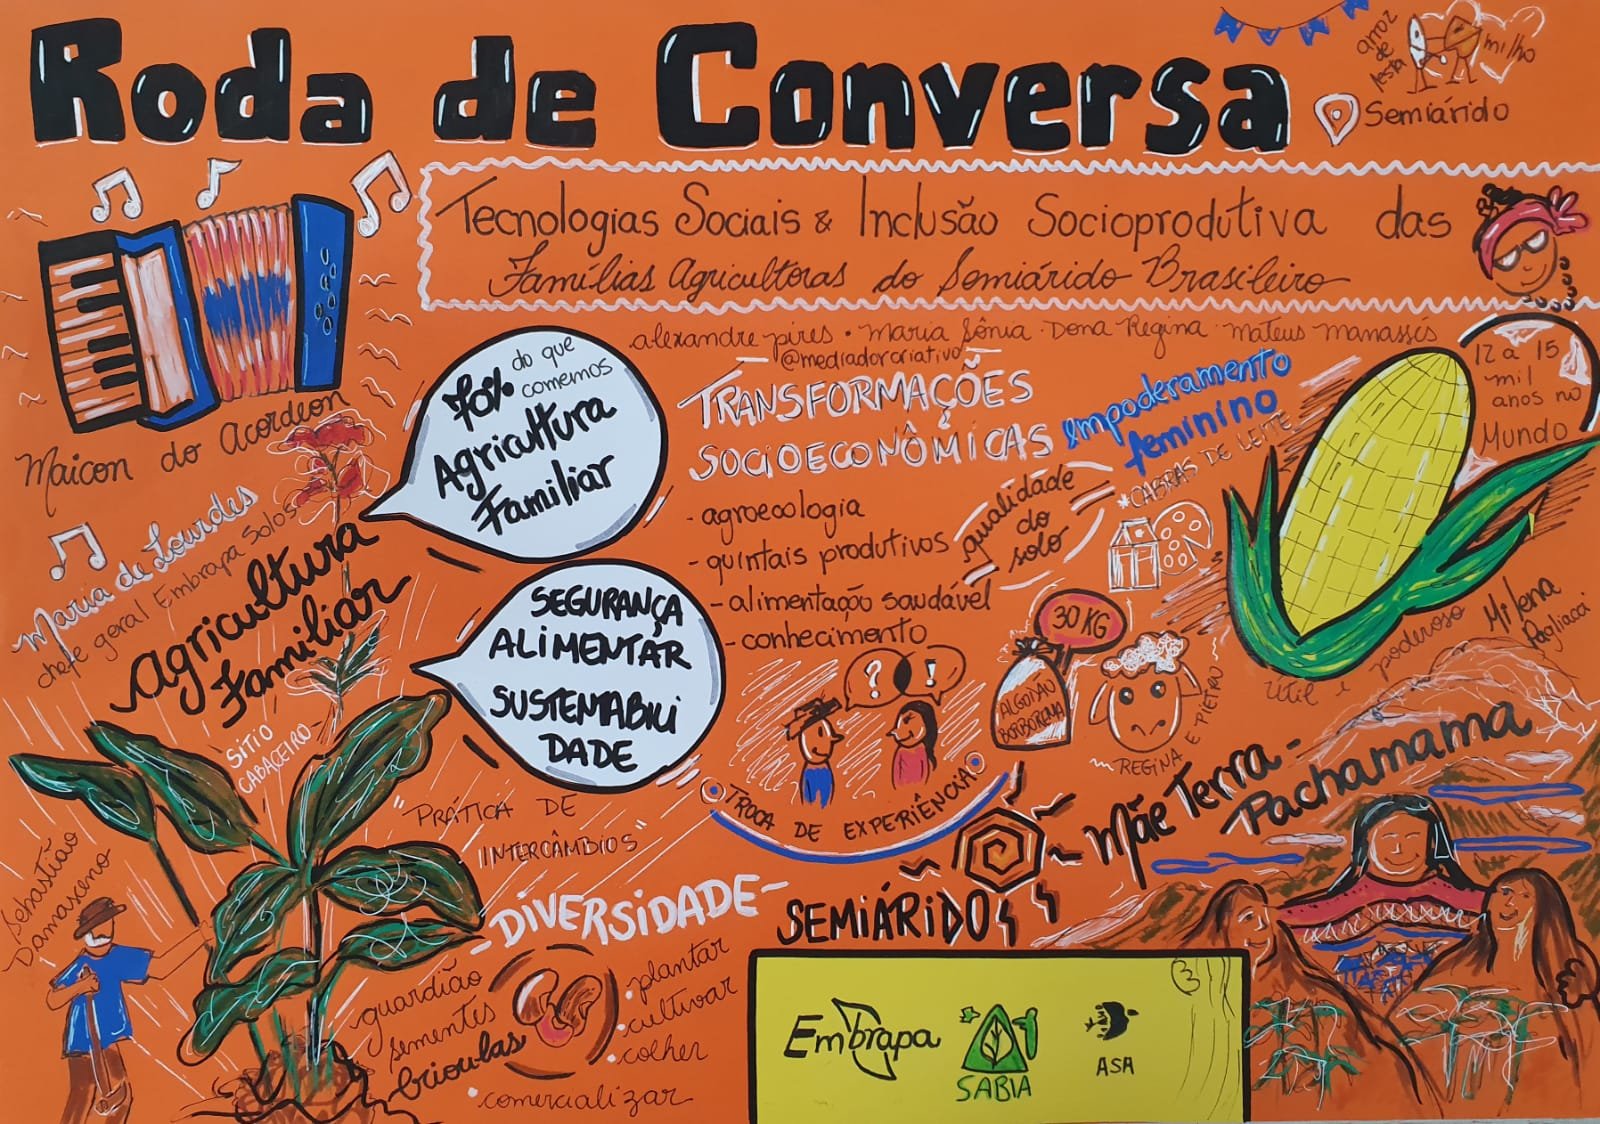 Roda de Conversa
arroz de festa
milho
Semiárido
Tecnologias Sociais & Inclusão Socioprodutiva das
Famílias Agricultoras do Semiárido Brasileiro
alexandre pires · Maria Sônia · Dona Regina · Mateus Manassés
@mediadorcriativo
Maicon do Acordeon
Maria de Lourdes
chefe geral Embrapa Solos
Agricultura
Familiar
70% do que
comemos
Agricultura
Familiar
SEGURANÇA
ALIMENTAR
SUSTENTABILI
DADE
TRANSFORMAÇÕES
SOCIOECONÔMICAS
- agroecologia
- quintais produtivos
- alimentação saudável
- conhecimento
qualidade
do
solo
Empoderamento
feminino
*CABRAS DE LEITE
12 a 15
mil
anos no
Mundo
útil e poderoso
Milena
Pagliacci
30 KG
ALGODÃO
BORBOREMA
REGINA E PIETRO
? !
TROCA DE EXPERIÊNCIA
SITIO
CABACEIRO
"PRÁTICA DE
INTERCÂMBIOS"
Mãe Terra -
Pachamama
Sebastião
Damasceno
-DIVERSIDADE-
guardião
sementes
crioulas
·plantar
·cultivar
·colher
·comercializar
SEMIÁRIDO
Embrapa
SABIA
ASA